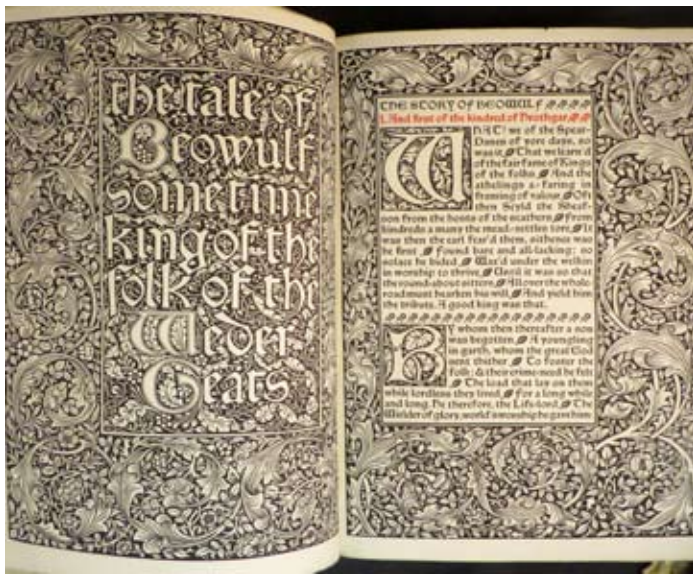 the tale of
Beowulf
sometime
king of the
folk of the
Weder
Geats
THE STORY OF BEOWULF
I. And first of the kindred of Hrothgar
WHAT! we of the Spear-
Danes of yore days, so
was it That we learn'd
of the fair fame of Kings
of the folks And the
athelings a-faring in
framing of valour. Oft
then Scyld the Sheaf-
son from the hosts of the scathers, From
kindreds a many the mead-settles tore; It
was then the earl fear'd them, sithence was
he first Found bare and all-lacking; so
solace he bided, Wax'd under the welkin
in worship to thrive, Until it was so that
the round-about sitters, All over the whale-
road must hearken his will, And yield him
the tribute. A good king was that.
BY whom then thereafter a son
was begotten, A youngling
in garth, whom the great God
sent thither To foster the
folk; & their crime-need he felt
The load that lay on them
while lordless they lived, For a long while
and long. He therefore, the Life-lord, The
Wielder of glory, world's worship he gave him: